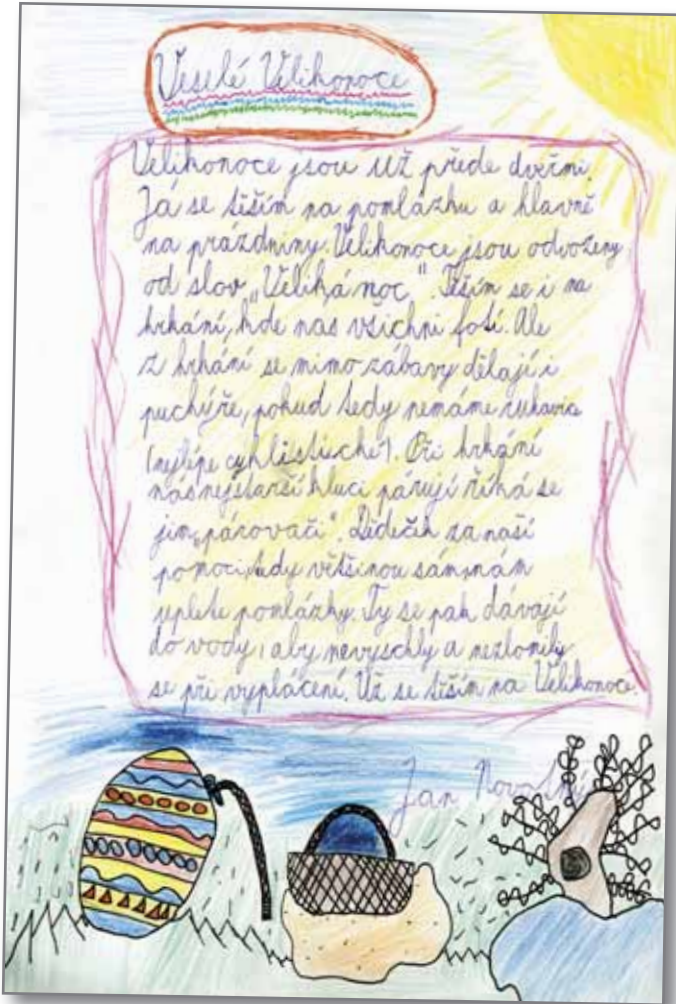 Veselé Velikonoce
Velikonoce jsou už přede dveřmi.
Já se těším na pomlázku a hlavně
na prázdniny. Velikonoce jsou odvozeny
od slov „Veliká noc". Těším se i na
hrkání, kde nas všichni fotí. Ale
z hrkání se mimo zábavy dělají i
puchýře, pokud tedy nemáme rukavice
(nejlépe cyklistické). Při hrkání
nás nejstarší kluci párují říká se
jim „párovači". Dědeček za naší
pomoci, tedy většinou sám, nám
uplete pomlázky. Ty se pak dávají
do vody, aby nevyschly a nezlomily
se při vyplácení. Už se těším na Velikonoce.
Jan Novotný